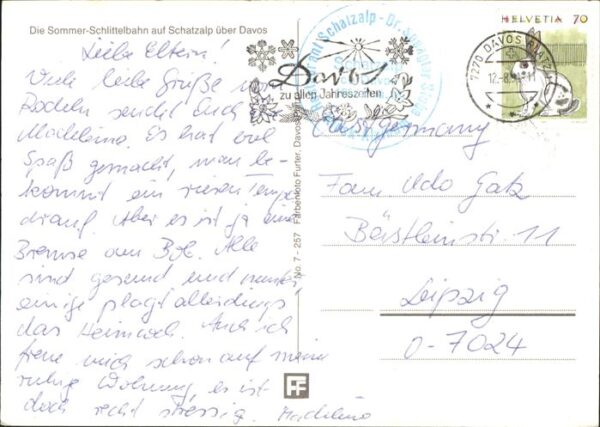 Die Sommer-Schlittelbahn auf Schatzalp über Davos
Liebe Eltern!
Viele liebe Grüße vom
Rodeln sendet Euch
Madeleine. Es hat viel
Spaß gemacht, man be-
kommt ein riesen Tempo
drauf. Aber es ist ja eine
Bremse am Bob. Alle
sind gesund und munter,
einige plagt allerdings
das Heimweh. Auch ich
freue mich schon auf meine
ruhige Wohnung, es ist
doch recht stressig. Madeleine
No. 7 - 257 Farbenfoto Furter, Davos
Davos
zu allen Jahreszeiten
Schatzalp
HELVETIA 70
7270 DAVOS PLATZ
12.-8.
Ostgermany
Fam. Udo Gatz
11
Leipzig
O-7024
FF